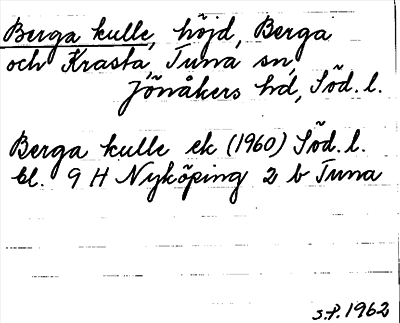 Berga kulle, höjd, Berga
och Krasta, Tuna sn,
Jönåkers hd, Söd. l.
Berga kulle ek (1960) Söd. l.
bl. 9 H Nyköping 2 b Tuna
S.P. 1962